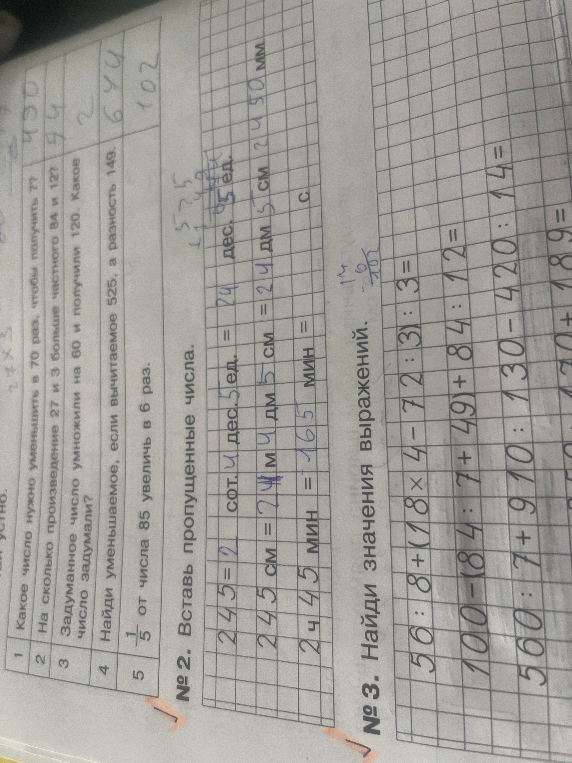 1 Какое число нужно уменьшить в 70 раз, чтобы получить 7? 490
2 На сколько произведение 27 и 3 больше частного 84 и 12? 74
3 Задуманное число умножили на 60 и получили 120. Какое число задумали? 2
4 Найди уменьшаемое, если вычитаемое 525, а разность 149.
5 1/5 от числа 85 увеличь в 6 раз. 102
№2. Вставь пропущенные числа.
245 = 2 сот. 4 дес. 5 ед. = 24 дес. 5 ед.
245 см = 2 м 4 дм 5 см = 24 дм 5 см 2450 мм
2 ч 45 мин = 165 мин = с
№3. Найди значения выражений.
56 : 8 + (18 × 4 − 72 : 3) : 3 =
100 − (84 : 7 + 49) + 84 : 12 =
560 : 7 + 910 : 130 − 420 : 14 =